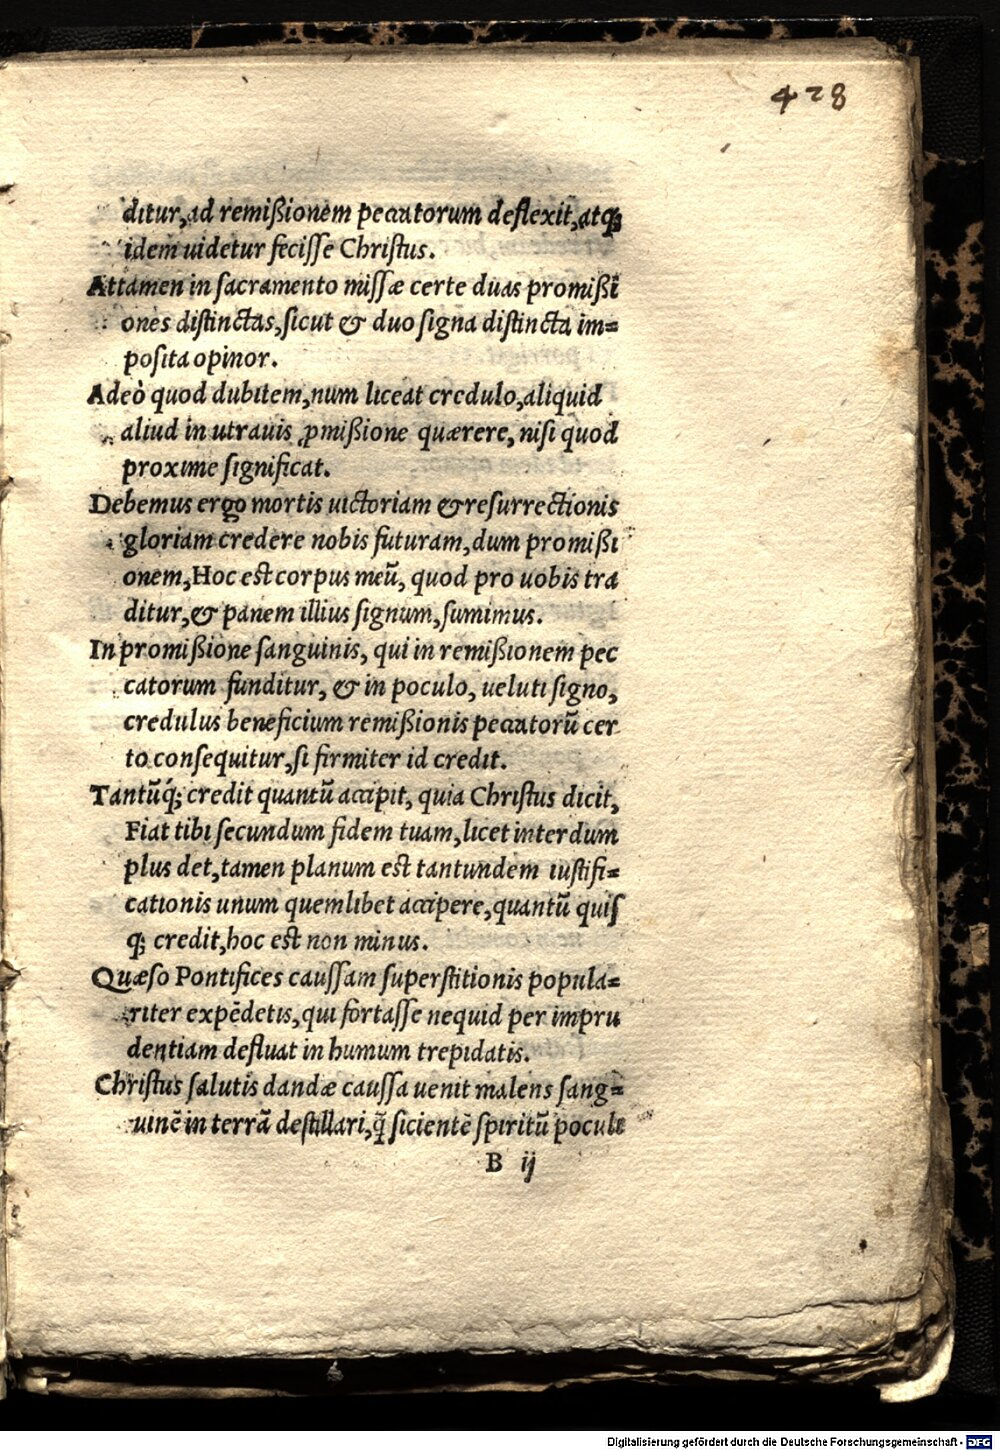 428
ditur,ad remißionem peccatorum deflexit,atq;
idem uidetur fecisse Christus.
Attamen in sacramento missæ certe duas promißi
ones distinctas,sicut & duo signa distincta im=
posita opinor.
Adeò quod dubitem,num liceat credulo,aliquid
aliud in utrauis ꝓmißione quærere, nisi quod
proxime significat.
Debemus ergo mortis uictoriam & resurrectionis
gloriam credere nobis futuram,dum promißi
onem,Hoc est corpus meũ, quod pro uobis tra
ditur,& panem illius signum,sumimus.
In promißione sanguinis, qui in remißionem pec
catorum funditur, & in poculo, ueluti signo,
credulus beneficium remißionis peccatorũ cer
to consequitur,si firmiter id credit.
Tantũq́; credit quantũ accipit, quia Christus dicit,
Fiat tibi secundum fidem tuam,licet interdum
plus det,tamen planum est tantundem iustifi=
cationis unum quemlibet accipere,quantũ quis
q; credit,hoc est non minus.
Quæso Pontifices caussam superstitionis popula=
riter expẽdetis,qui fortasse nequid per impru
dentiam defluat in humum trepidatis.
Christus salutis dandæ caussa uenit malens sang=
uinẽ in terrã destillari,q̃ sicientẽ spiritũ pocule
B ij
Digitalisierung gefördert durch die Deutsche Forschungsgemeinschaft - DFG